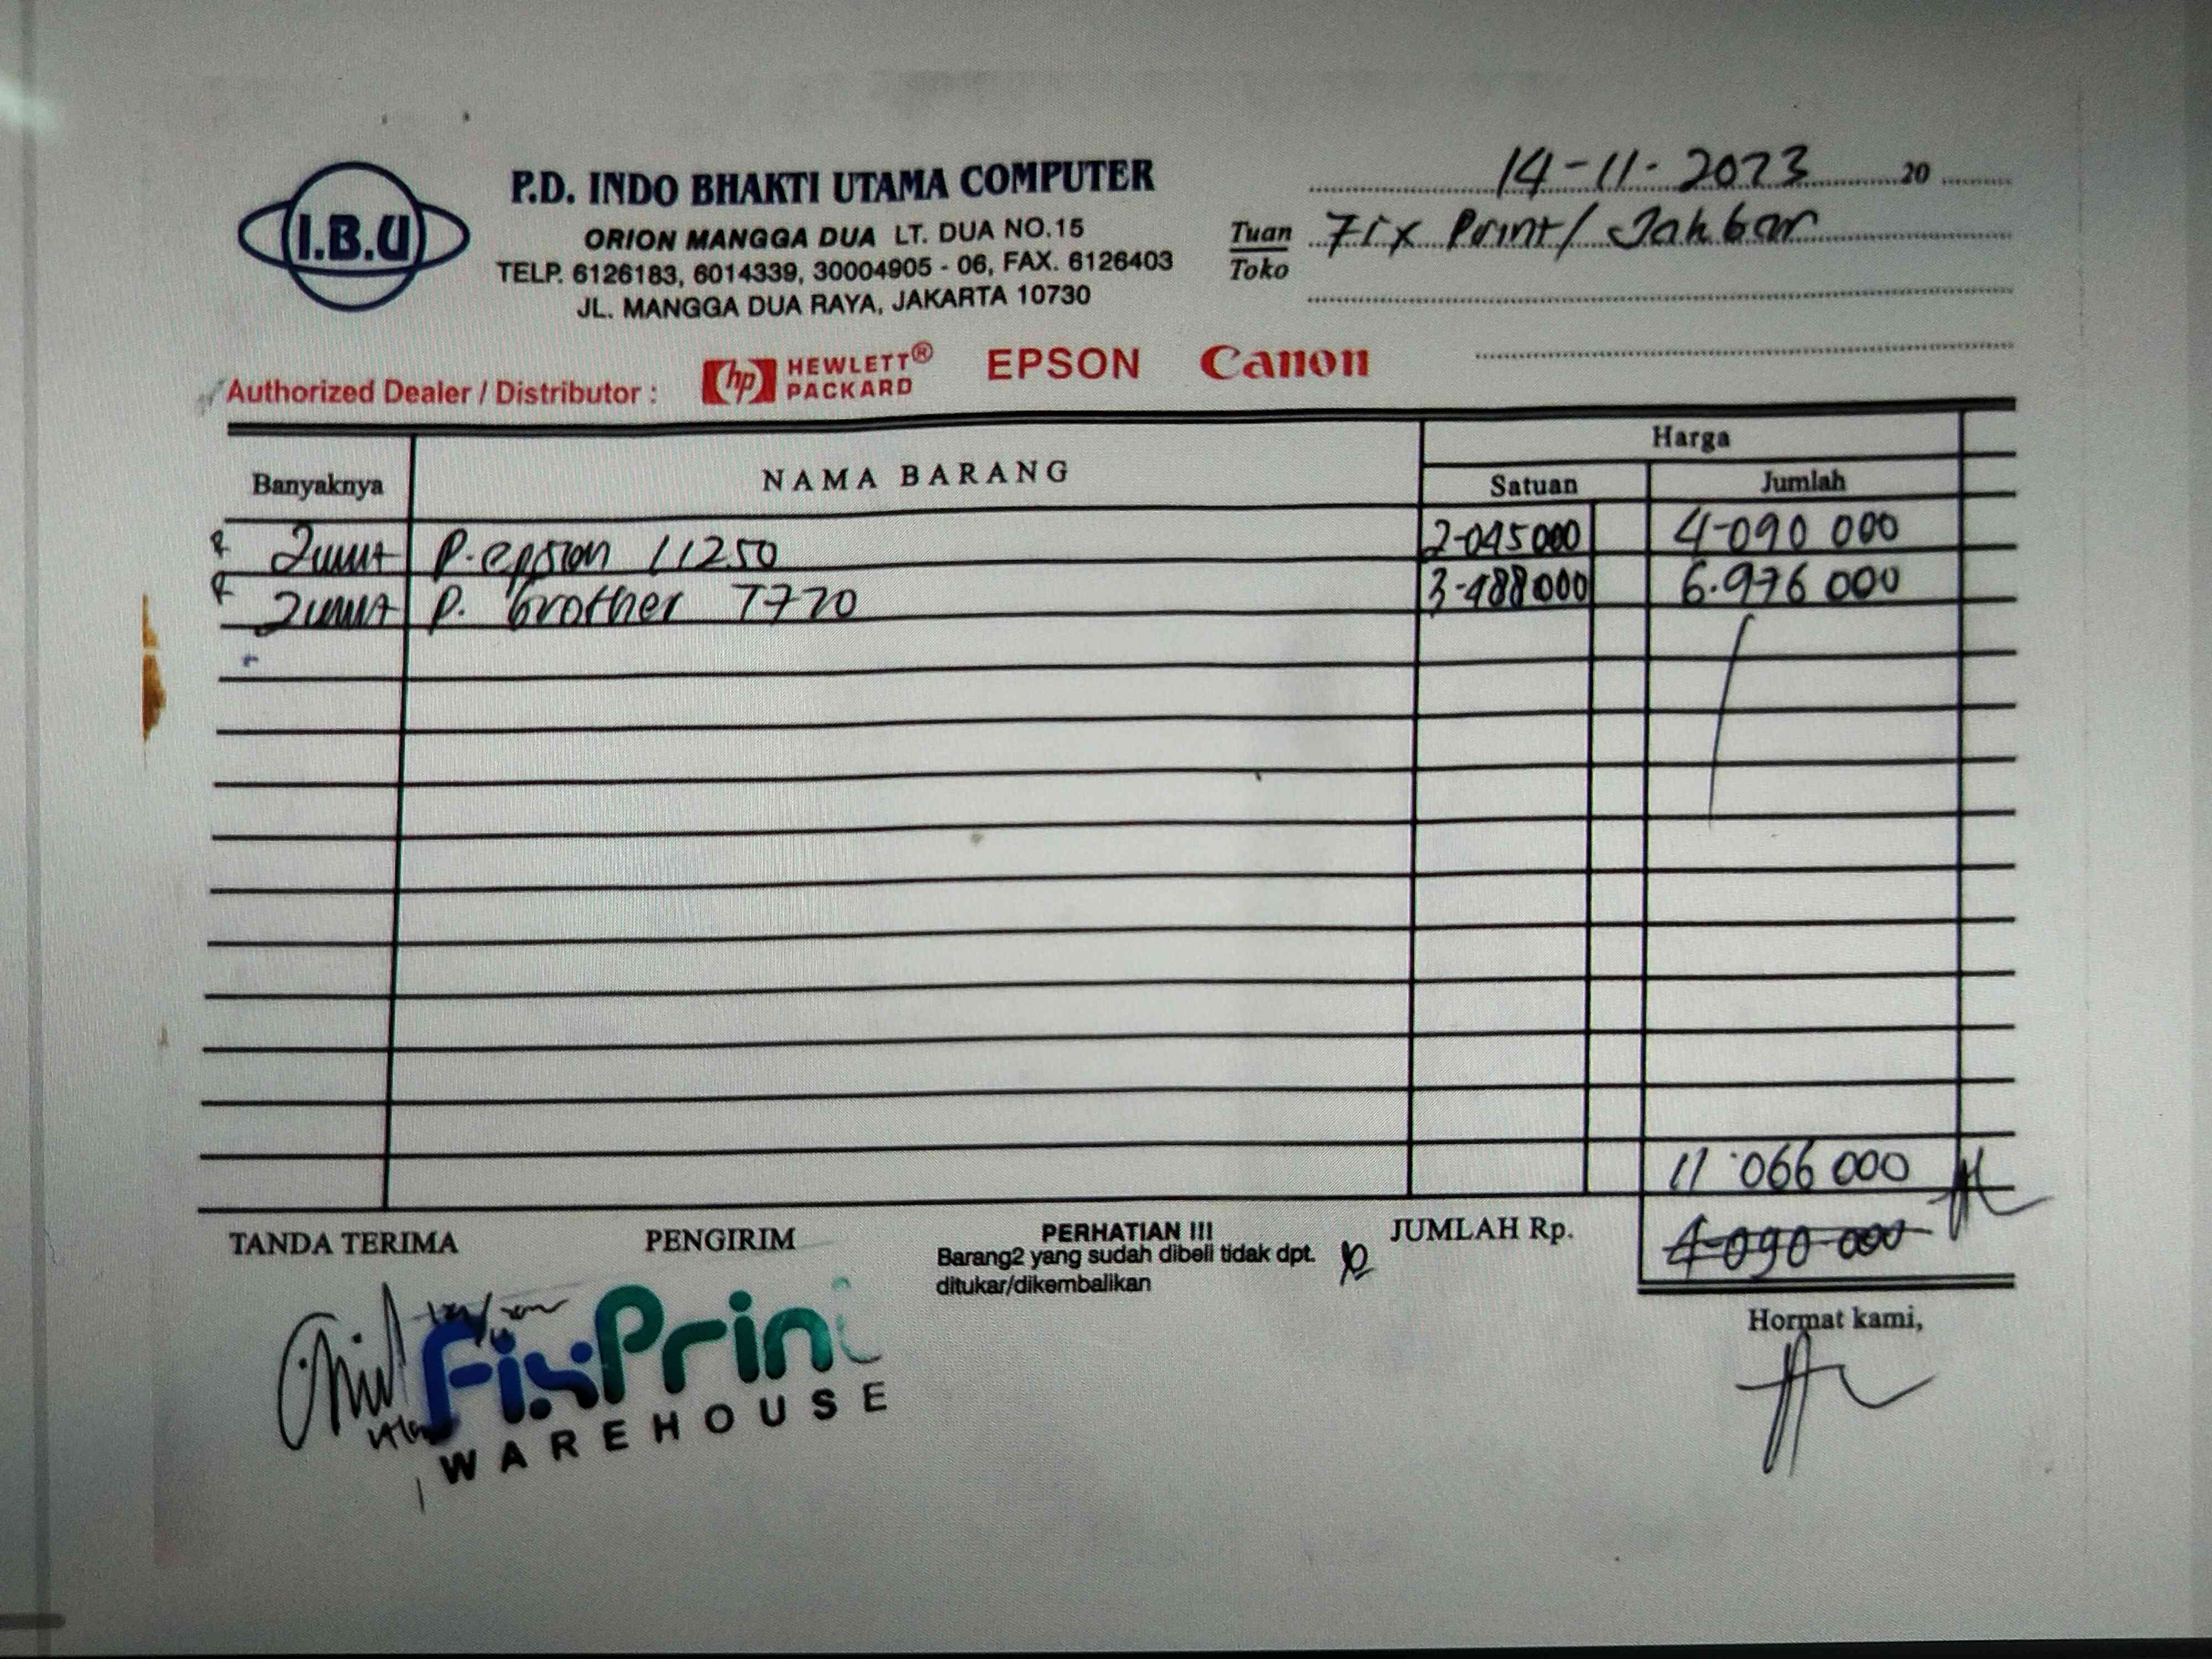 14-11-2023 20
I.B.U
P.D. INDO BHAKTI UTAMA COMPUTER
ORION MANGGA DUA LT. DUA NO.15
TELP. 6126183, 6014339, 30004905 - 06, FAX. 6126403
JL. MANGGA DUA RAYA, JAKARTA 10730
Tuan
Toko
Fix Print / Jakbar
Authorized Dealer / Distributor :
hp HEWLETT®
PACKARD
EPSON
Canon
Banyaknya NAMA BARANG Harga
Satuan Jumlah
2 unit P. epson L1250 2-045000 4-090 000
2 unit P. brother T720 3-488000 6.976 000
11.066 000
TANDA TERIMA PENGIRIM PERHATIAN !!! JUMLAH Rp. 4-090 000
Barang2 yang sudah dibeli tidak dpt.
ditukar/dikembalikan
Hormat kami,
FixPrint
WAREHOUSE